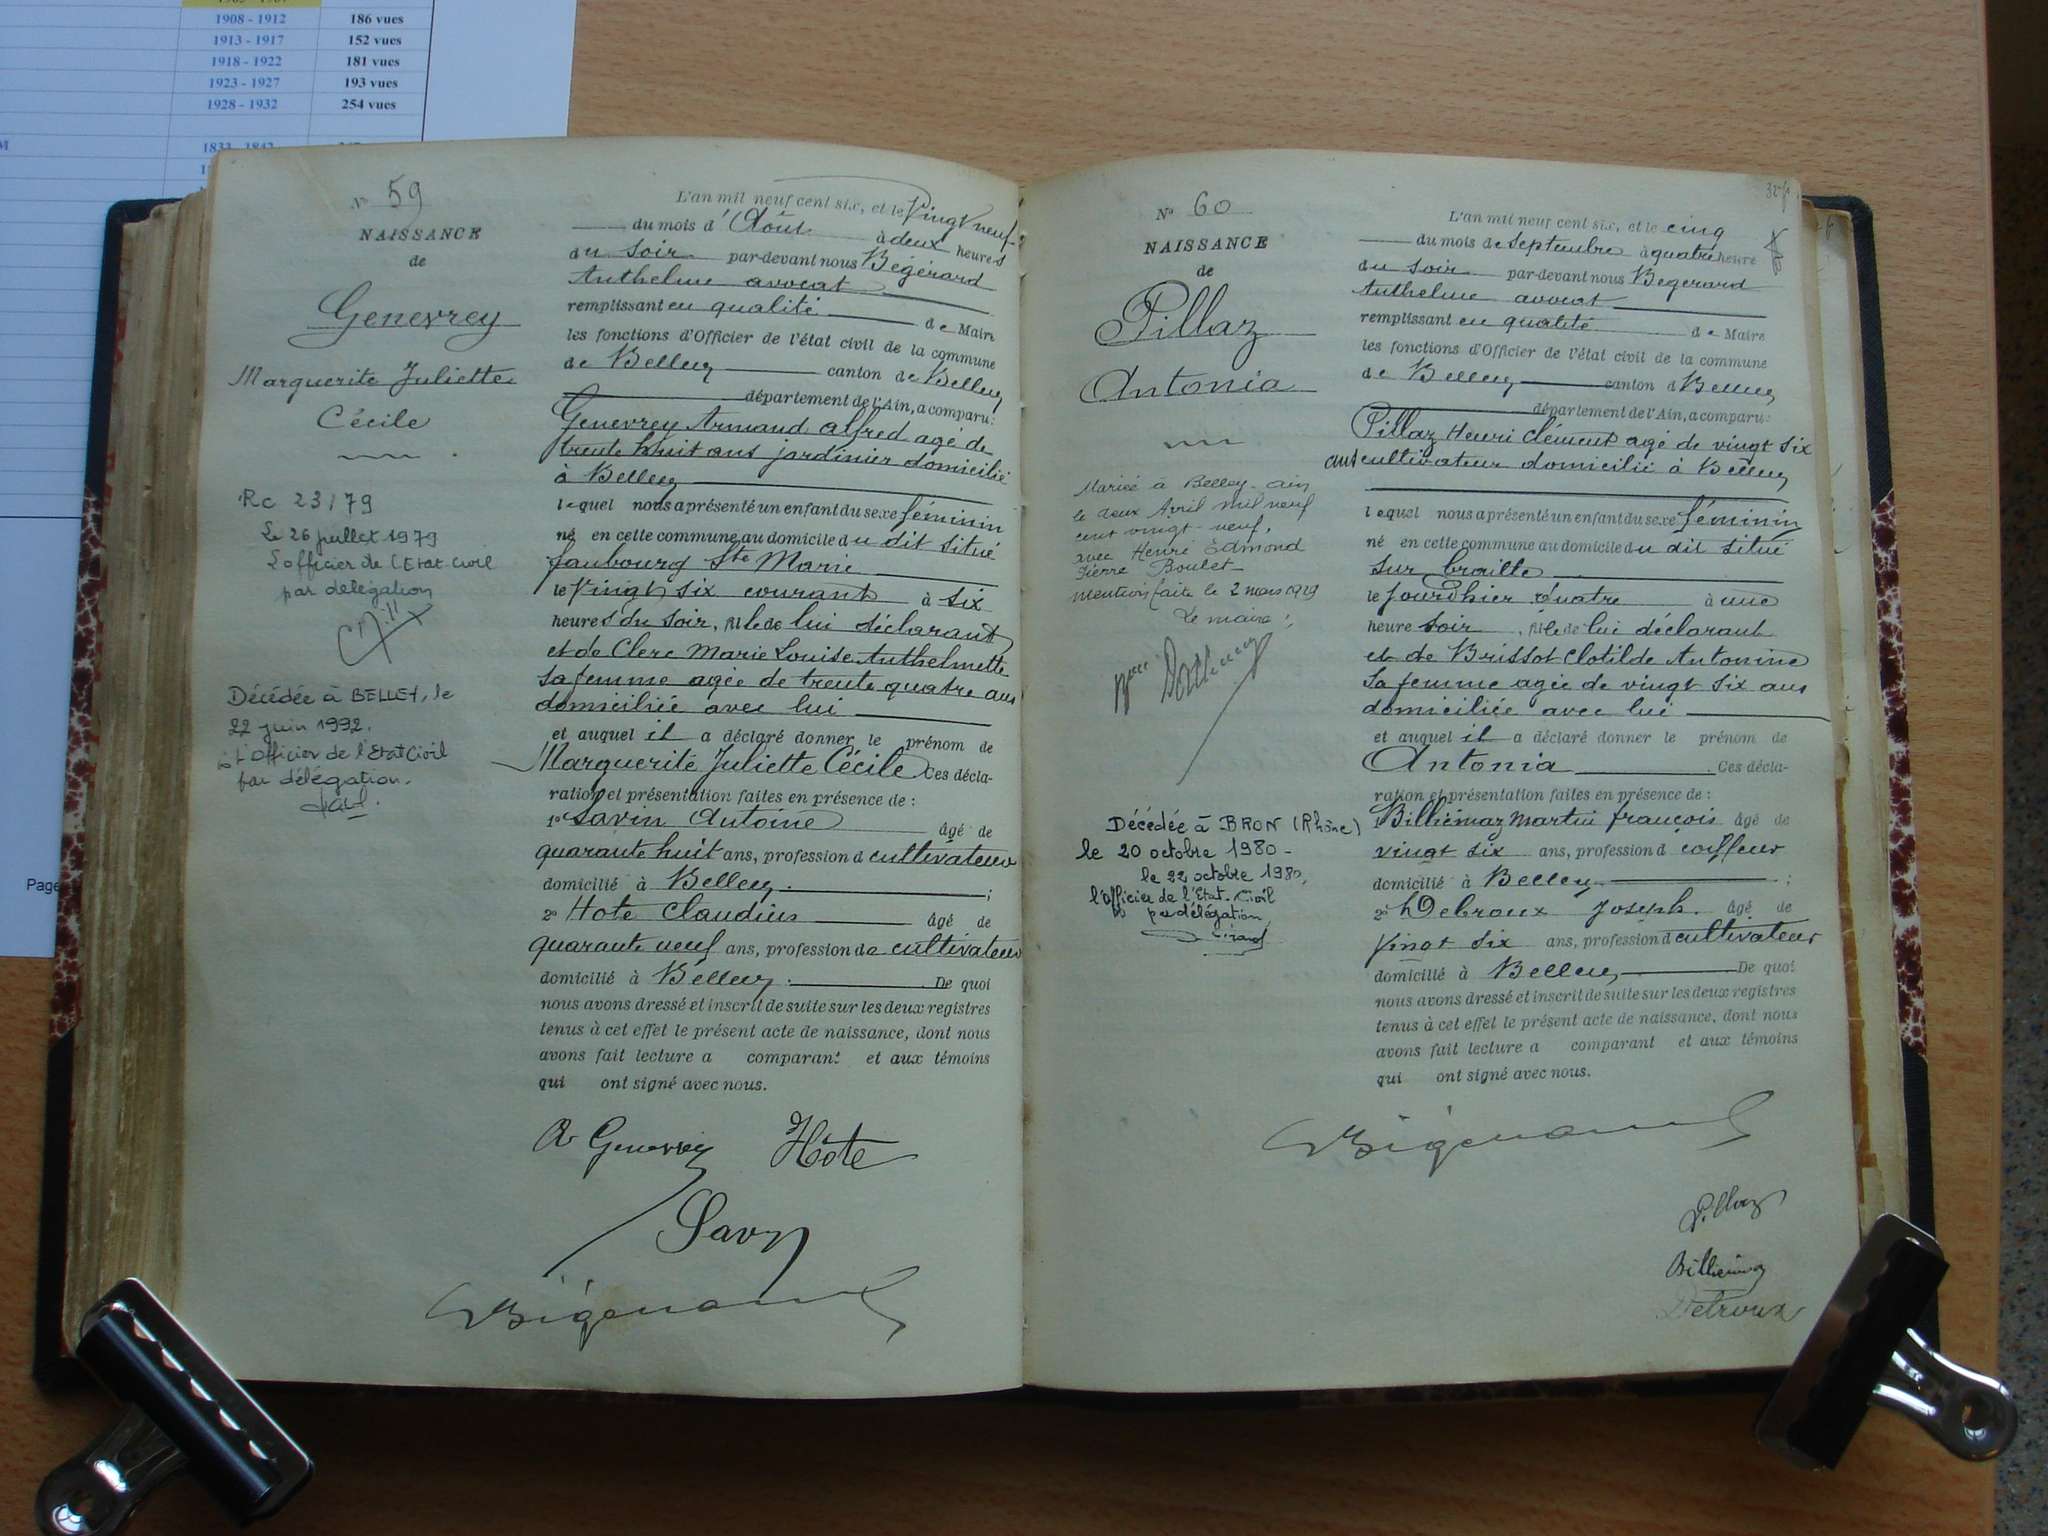 1908 - 1912 186 vues
1913 - 1917 152 vues
1918 - 1922 181 vues
1923 - 1927 193 vues
1928 - 1932 254 vues
1833 - 1842
Page
N° 59
NAISSANCE
de
Genevrey
Marguerite Juliette
Cécile
Rc 23/79
Le 26 juillet 1979
L'officier de l'Etat Civil
par délégation
Décédée à BELLEY, le
22 juin 1992.
L'Officier de l'Etat Civil
par délégation.
L'an mil neuf cent six, et le Vingt neuf
du mois d'Août à deux heures
du soir par-devant nous Bégérard
Anthelme avocat
remplissant en qualité de Maire
les fonctions d'Officier de l'état civil de la commune
de Belley canton de Belley
département de l'Ain, a comparu:
Genevrey Armand alfred agé de
trente huit ans jardinier domicilié
à Belley
lequel nous a présenté un enfant du sexe féminin
né en cette commune au domicile du dit situé
faubourg Ste Marie
le Vingt six courant à six
heures du soir, fille de lui déclarant
et de Clerc Marie Louise Anthelmette
sa femme agée de trente quatre ans
domiciliée avec lui
et auquel il a déclaré donner le prénom de
Marguerite Juliette Cécile Ces décla-
ration et présentation faites en présence de :
1° Savin Antoine âgé de
quarante huit ans, profession d cultivateur
domicilié à Belley ;
2° Hote Claudius âgé de
quarante neuf ans, profession de cultivateur
domicilié à Belley De quoi
nous avons dressé et inscrit de suite sur les deux registres
tenus à cet effet le présent acte de naissance, dont nous
avons fait lecture a comparant et aux témoins
qui ont signé avec nous.
A Genevrey Hôte
Savin
N° 60
NAISSANCE
de
Pillaz
Antonia
Mariée à Belley. ain
le deux Avril mil neuf
cent vingt-neuf,
avec Henri Edmond
Pierre Boulet
mention faite le 2
Le maire :
Décédée à BRON (Rhône)
le 20 octobre 1980 -
le 22 octobre 1980,
l'officier de l'Etat-Civil
par délégation,
Girard
L'an mil neuf cent six, et le cinq
du mois de septembre à quatre heure
du soir par-devant nous Begerard
Anthelme avocat
remplissant en qualité de Maire
les fonctions d'Officier de l'état civil de la commune
de Belley canton d Belley
département de l'Ain, a comparu:
Pillaz Henri Clément agé de vingt six
ans cultivateur domicilié à Belley
lequel nous a présenté un enfant du sexe féminin
né en cette commune au domicile du dit situé
sur
le jourd'hier quatre à une
heure soir, fille de lui déclarant
et de Brissot Clotilde Antonine
sa femme agée de vingt six ans
domiciliée avec lui
et auquel il a déclaré donner le prénom de
Antonia Ces décla-
ration et présentation faites en présence de :
1° Billiemaz Martin françois âgé de
vingt six ans, profession d coiffeur
domicilié à Belley ;
2° Debroux Joseph. âgé de
Vingt six ans, profession d cultivateur
domicilié à Belley De quoi
nous avons dressé et inscrit de suite sur les deux registres
tenus à cet effet le présent acte de naissance, dont nous
avons fait lecture a comparant et aux témoins
qui ont signé avec nous.
Pillaz
Billiemaz